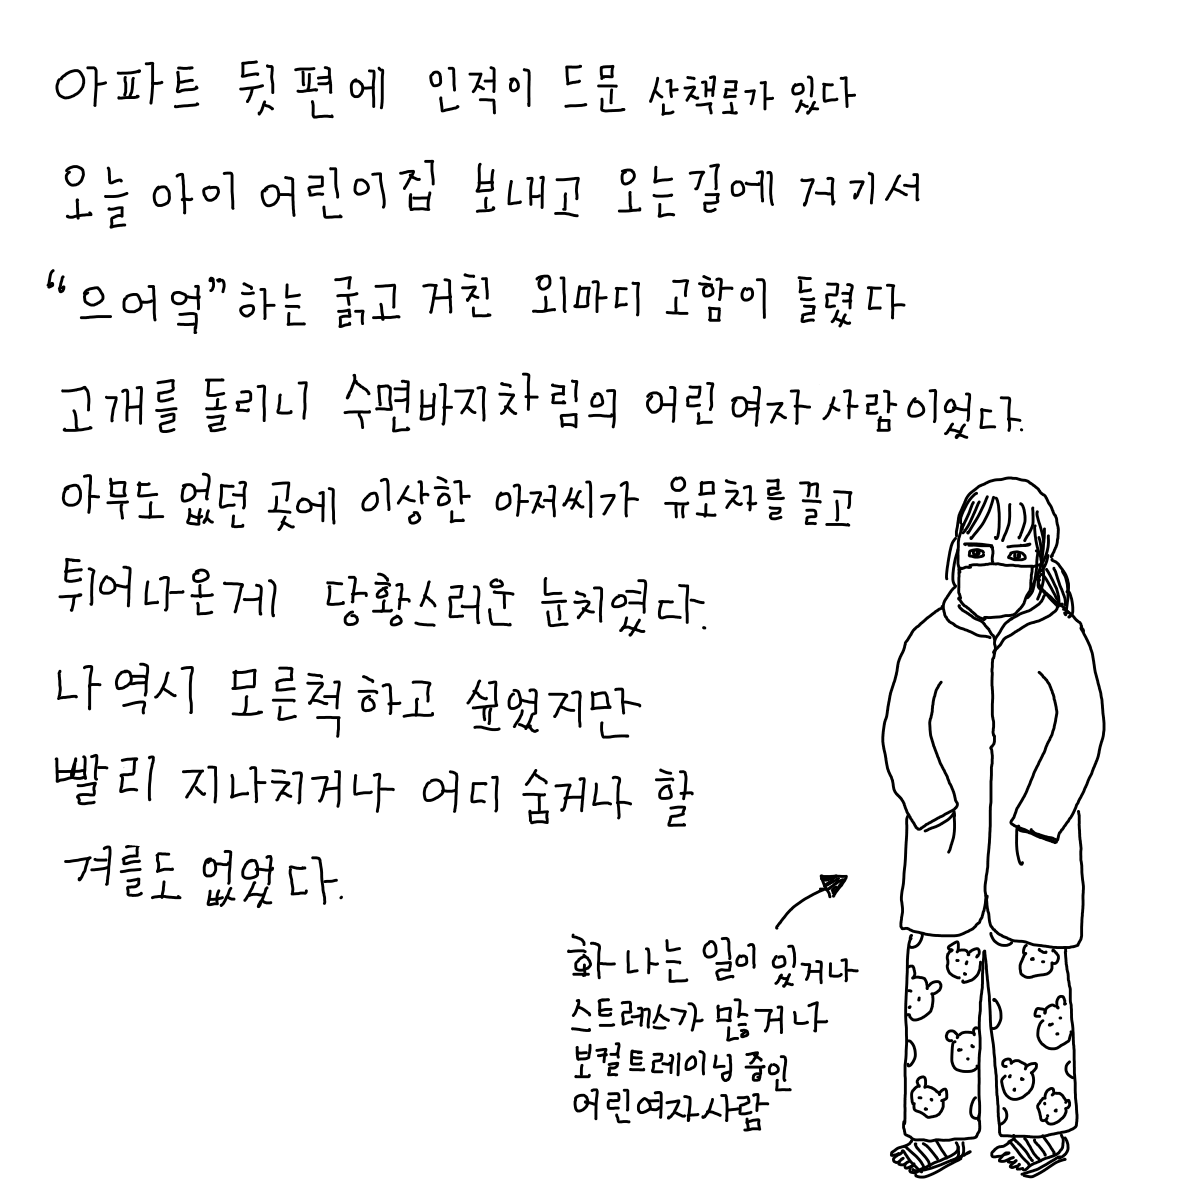 아파트 뒷편에 인적이 드문 산책로가 있다
오늘 아이 어린이집 보내고 오는길에 거기서
“으어억”하는 굵고 거친 외마디 고함이 들렸다
고개를 돌리니 수면바지차림의 어린 여자 사람이었다.
아무도 없던 곳에 이상한 아저씨가 유모차를 끌고
튀어나온게 당황스러운 눈치였다.
나 역시 모른척 하고 싶었지만
빨리 지나치거나 어디 숨거나 할
겨를도 없었다.
화 나는 일이 있거나
스트레스가 많거나
보컬트레이닝 중인
어린여자사람